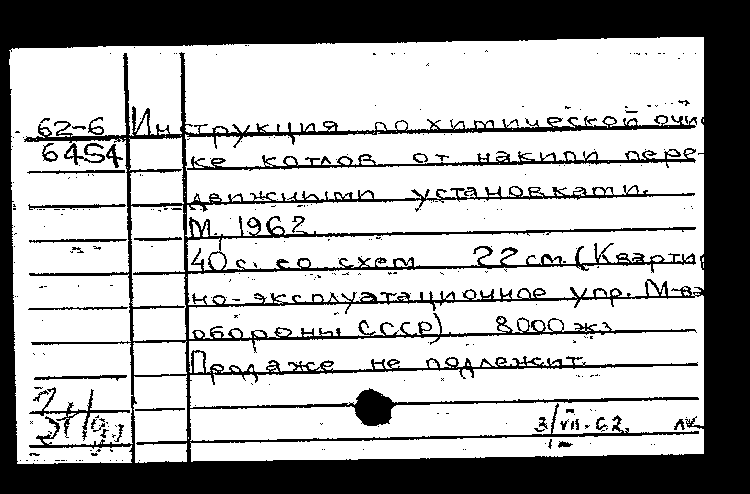 62-6 Инструкция по химической очис
6454 ке котлов от накипи пере-
движными установками.
М., 1962.
40 с. со схем. 22 см. (Квартир
но-эксплуатационное упр. М-ва
обороны СССР). 8000 экз.
Продаже не подлежит.
3/VII-62.